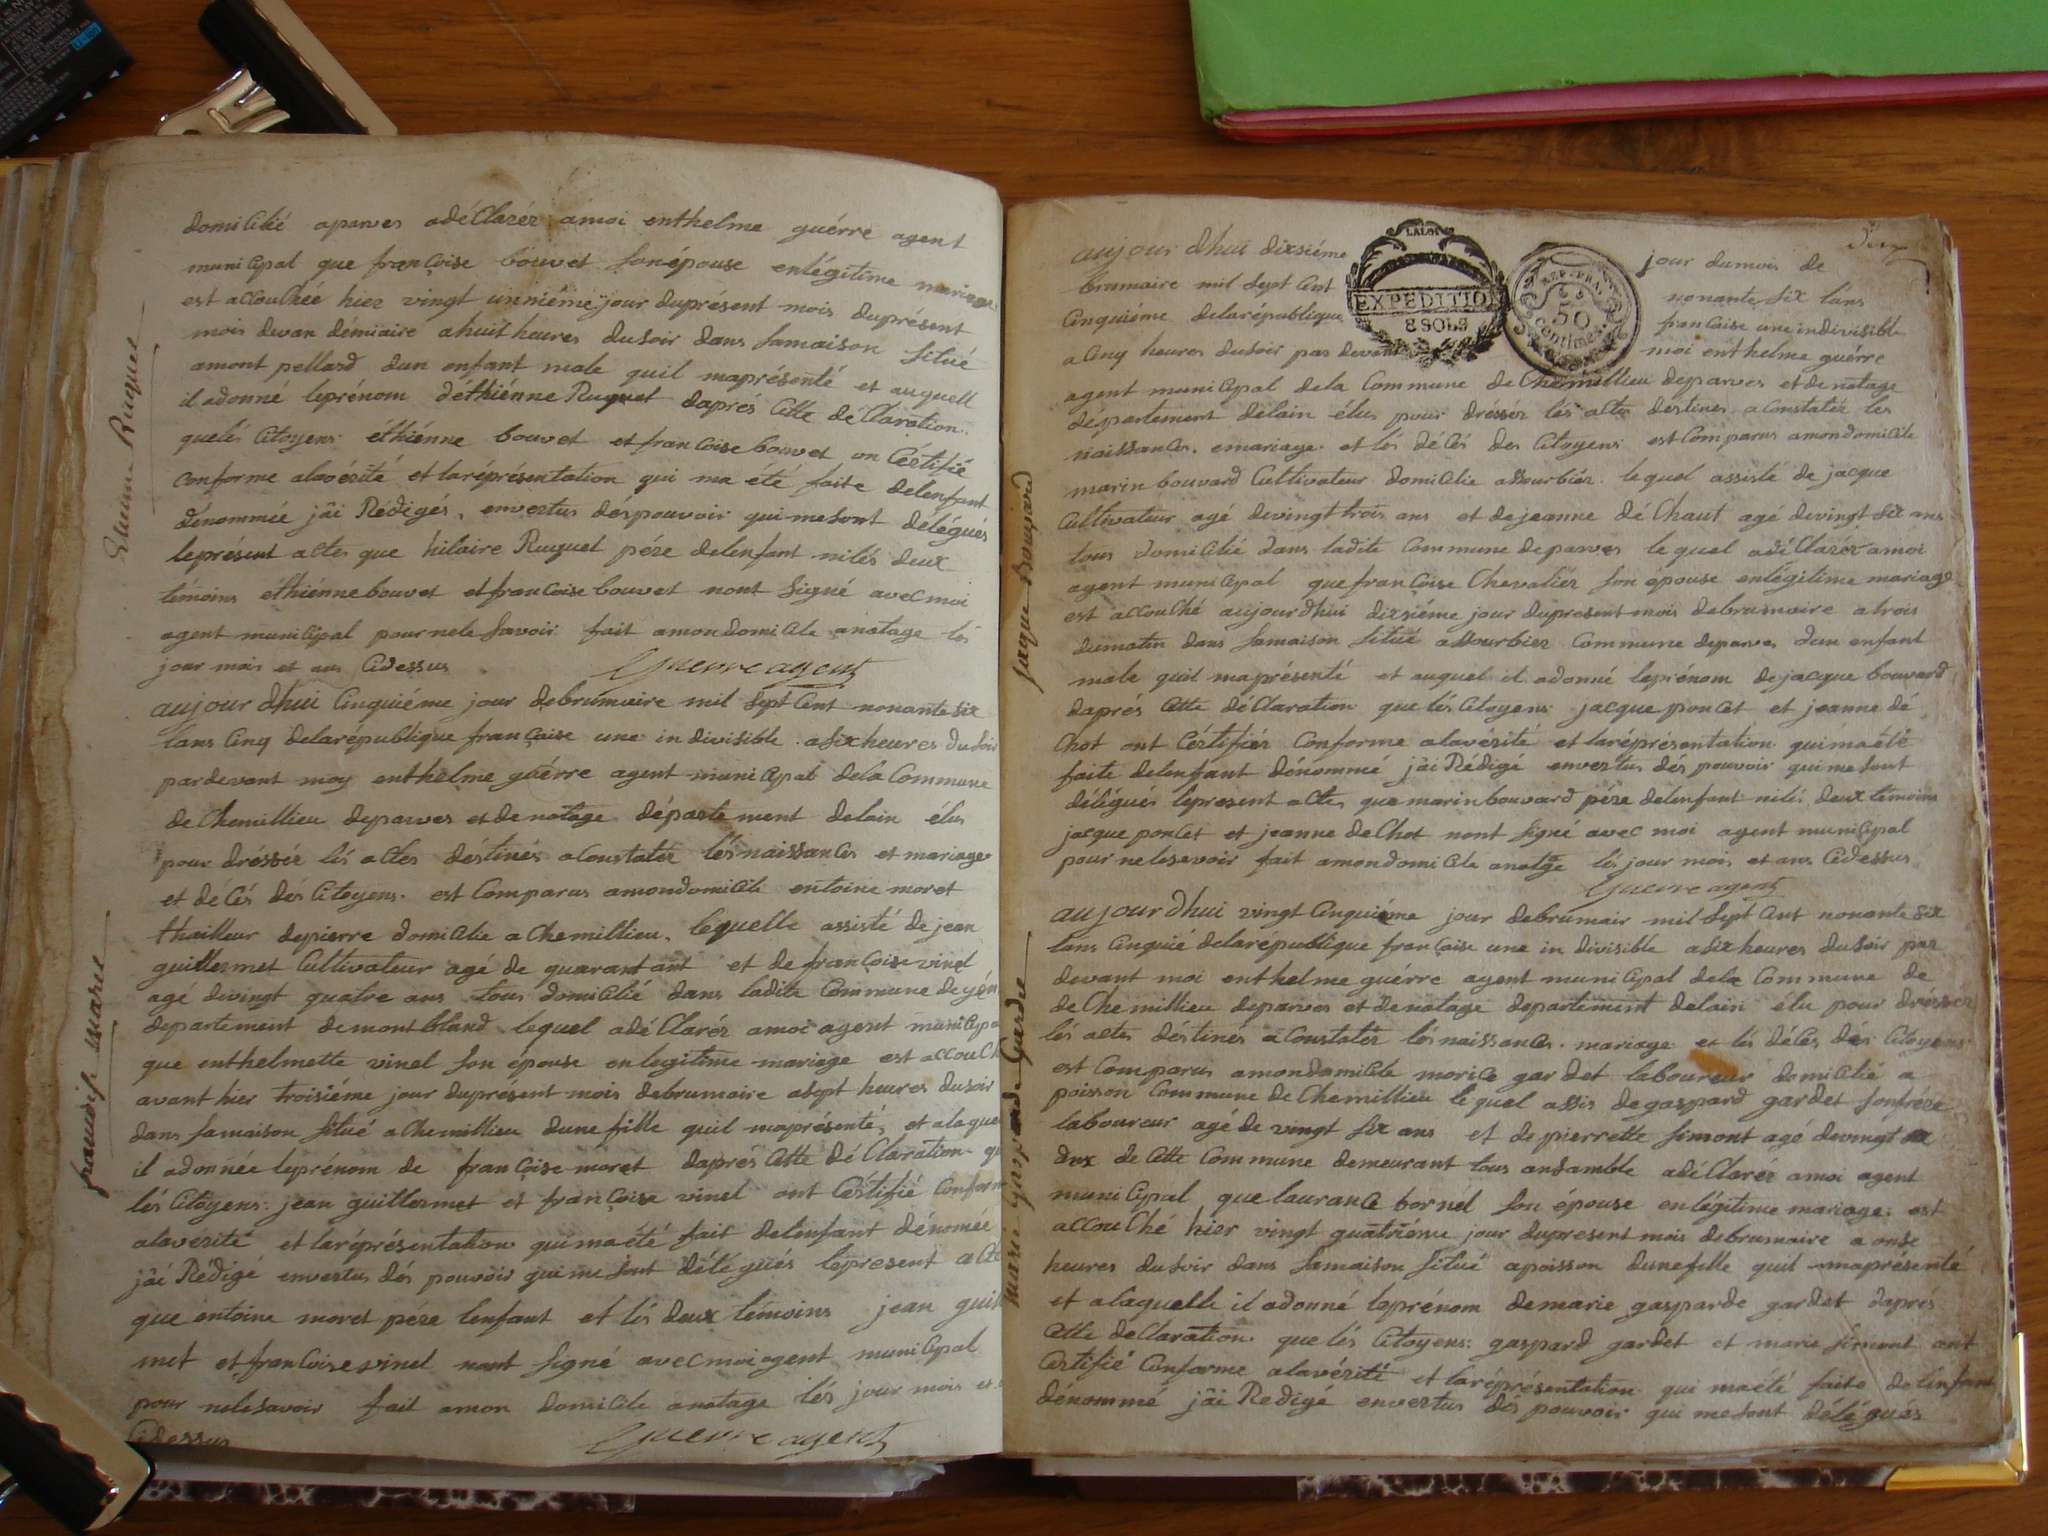 domicilié a parves a déClarér a moi enthelme guérre agent
municipal que françoise bouvet Son épouse en légitime mariage
est accouchéé hier vingt unniéme jour du présent mois du présent
mois de van démiaire a huit heures du soir dans Samaison Situé
amont pellard dun enfant male quil ma présenté et auquell
il adonné le prénom déthiénne Ruquet daprés Cette déClaration
que lés Citoyens éthiénne bouvet et françoise bouvet on Cértifié
conforme alavérité et la réprésentation qui ma été faite delenfant
dénommée jâi Rédigés envertus dés pouvoir qui me sont délégués
le présent actes que hilaire Ruquet pére delenfant ni lés deux
témoins éthiénne bouvet et françoise bouvet nont Signé avec moi
agent municipal pour nele Savoir fait amon domicile anatage lés
jour mois et ans Cidessus Guerre agent
Etienne Ruquet
aujour dhui Cinquiéme jour debrumaire mil Sept Cent nonante six
lans Cinq delarépublique françoise une in divisible a six heures du Soir
par devant moy enthelme guérre agent municipal dela Commune
de Chemillieu de parves et de natage département delain élus
pour dréssér lés actes déstinés a Constatér lés naissances et mariage
et dé Cés dés Citoyens est Comparus amondomicile entoine moret
thailleur depierre domicilie a Chemillieu lequelle assisté de jean
guillermet Cultivateur agé de quarant ant et de françoise vinel
agé devingt quatre ans tous domicilié dans ladite Commune de yén
departement demontbland lequel adé Clarér amoi agent municipa
que enthelmette vinel Son épouse en legitime mariage est accouch
avant hier troisiéme jour duprésent mois debrumaire asept heures dusoir
dans Samaison Situé a Chemillieu dune fille quil maprésenté et alaque
il adonnée leprénom de françoise moret daprés Cette dé Claration qu
lés Citoyens jean guillermet et françoise vinel ont Cértifié Conform
alaverité et laréprésentation qui maété fait delenfant dénomée
jâi Rédigé envertus dés pouvoir qui me Sont délégués lepresent acte
que entoine moret pére lenfant et lés deux témoins jean guill
met et françoise vinel nont Signé avec moi agent municipal
pour nelesavoir fait amon domicile anatage lés jour mois et
Cidessus Guerre agent
françoise Maret
aujour dhui dixsiéme jour dumois de
brumaire mil Sept Cent nonante Six lans
Cinquiéme delarépublique francoise une indivisible
a Cinq heures dusoir par devant moi enthelme guérre
LA LOI
EXPEDITION
8 SOLS
REP. FRA.
50
Centimes
agent municipal dela Commune de Chemillieu deparves et denatage
département delain élus pour dréssér lés actes déstines a Constatér les
naissances emariage et lés dé Cés des Citoyens est Comparus amondomicile
marin bouvard Cultivateur domicilie assourbiér lequel assisté de jacque
Cultivateur agé devingt trois ans et dejeanne dé Chaut agé devingt Six ans
tous domicilié dans ladite Commune deparves lequel adé Clarér amoi
agent municipal que françoise Chevaliér Son épouse enlégitime mariage
est accouché aujourdhui dixsiéme jour dupresent mois debrumaire a trois
dumatin dans Samaison Situé assourbier Commune deparves dun enfant
male quil maprésenté et auquel il adonné leprénom de jacque bouvard
daprés Cette déClaration que lés Citoyens jacque poncet et jeanne dé
Chot ont Cértifiér Conforme alavérité et laréprésentation quimaété
faite delenfant dénommé jâi Rédigé envertus dés pouvoir qui me sont
délégués lepresent actes que marin bouvard pére delenfant nilés deux témoins
jacque poncet et jeanne de Chot nont Signé avec moi agent municipal
pour nelesavoir fait amondomicile anatge lés jour mois et ans Cidessus
Guerre agent
jaque Bouvard
aujour dhui vingt Cinquiéme jour debrumair mil Sept Cent nonante six
lans Cinquié delarépublique françoise une in divisible asix heures dusoir par
devant moi enthelme guérre agent municipal dela Commune de
de Chemillieu deparves et denatage departement delain élu pour drésser
lés actes déstinés a Constatér lés naissances mariage et lés dé Cés dés Citoyens
est Comparus amondomicile morice gardet laboureur domicilié a
poisson Commune de Chemillieu lequel assis de gaspard gardet Sonfrére
laboureur agé de vingt Six ans et de pierrette Simont agé devingt
dux de Cette Commune demeurant tous ansamble adé Clarér amoi agent
municipal que laurance bornel Son épouse enlégitime mariage est
accouché hier vingt quatriéme jour dupresent mois debrumaire a onse
heures dusoir dans Samaison Situé apoisson dunefille quil maprésenté
et alaquelle il adonné leprénom de marie gasparde gardet daprés
Cette deClaration que lés Citoyens gaspard gardet et marie Simont ont
Certifié Conforme alavérité et laréprésentation qui maété faite delenfant
dénommé jâi Redigé envertus dés pouvoir qui me sont délégués
Marie Gasparde Guerdet